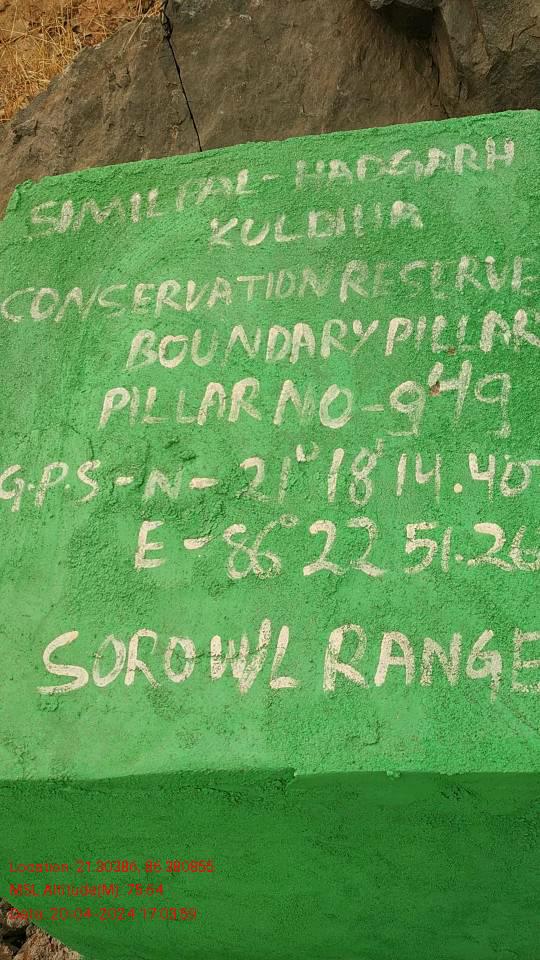 SIMILPAL-HADGARH
KULDIHA
CONSERVATION RESERVE
BOUNDARY PILLAR
PILLAR NO-949
G.P.S-N-21°18'14.40
E-86°22 51.26
SOROWL RANGE
Location: 21.30386, 86.380855
MSL Altitude(M): 75.64
Date: 20-04-2024 17:03:59